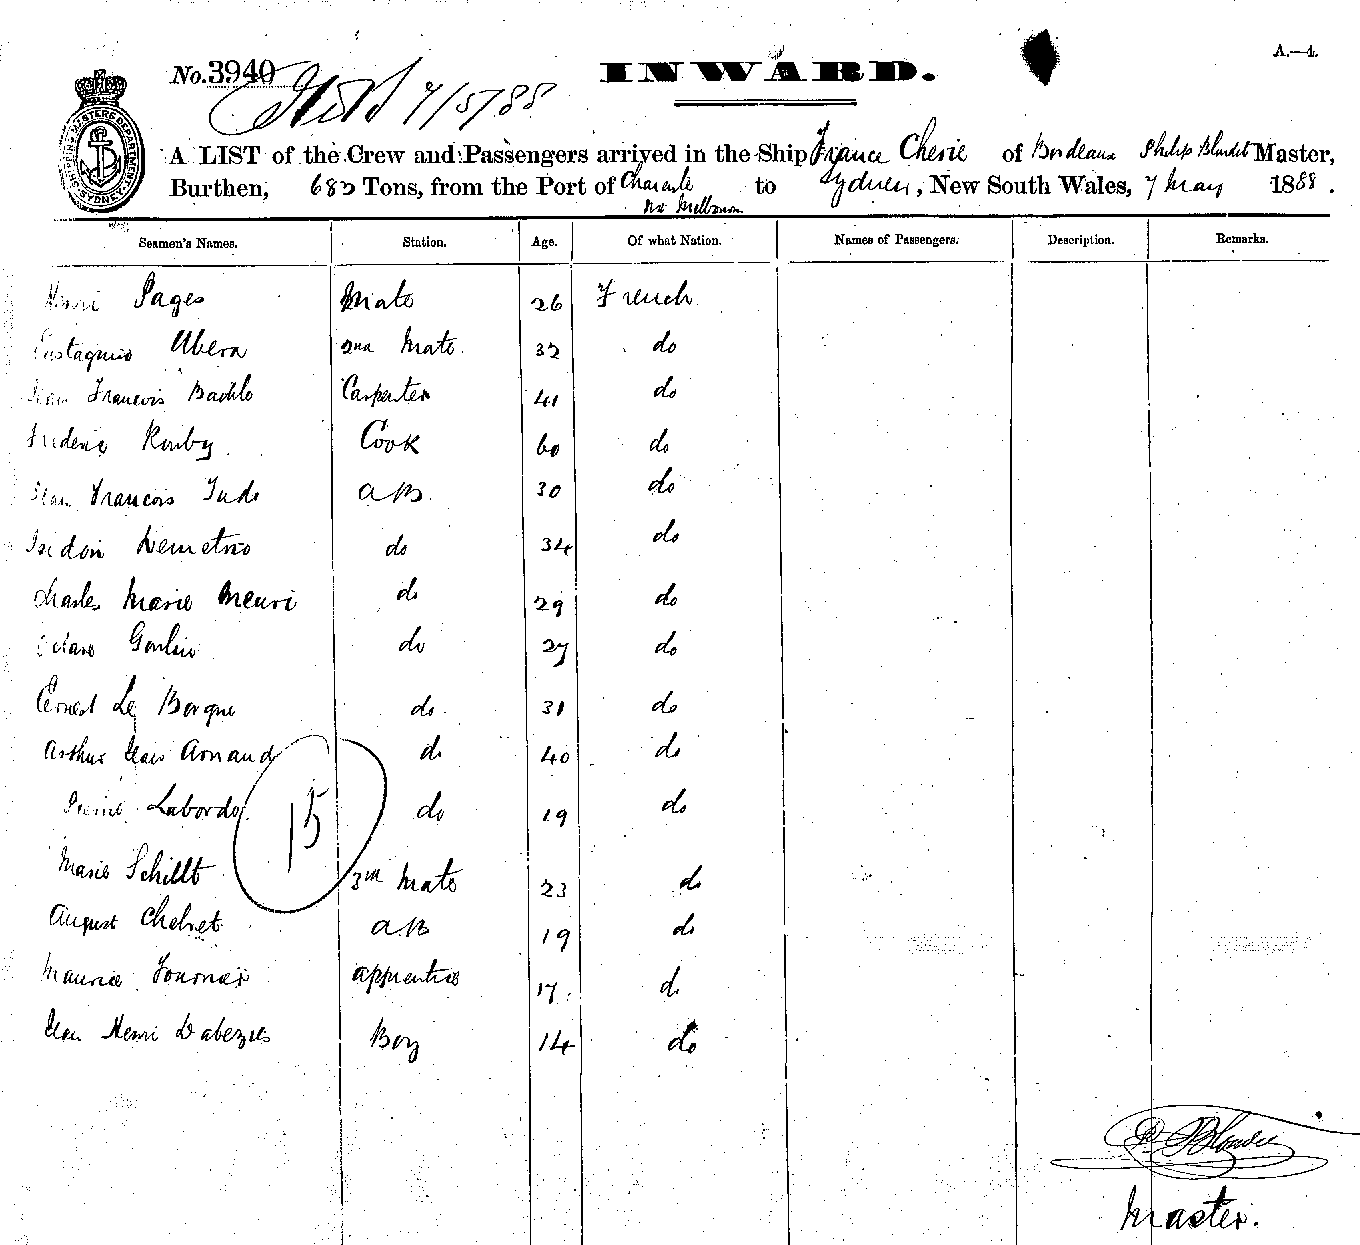 A.—4.
No. 3940
INWARD.
7/5/88
A LIST of the Crew and Passengers arrived in the Ship France Cherie of Bordeaux Philip Blondet Master,
Burthen, 683 Tons, from the Port of Charente to Sydney, New South Wales, 7 May 1888.
via Melbourne
Seamen's Names. Station. Age. Of what Nation. Names of Passengers. Description. Remarks.
Henri Pages Mate 26 French
Eustaquio Ubera 2nd Mate 32 do
Jean Francois Carpenter 41 do
Cook 60 do
Jean Francois AB 30 do
do 34 do
Charles Marie do 29 do
do 27 do
Ernest Le Borgne do 31 do
Arthur Jean Arnaud do 40 do
Pierre Laborde do 19 do
15
Marie Schillt 3rd Mate 23 do
August AB 19 do
Maurice apprentice 17 do
Jean Henri Dabezies Boy 14 do
Master.